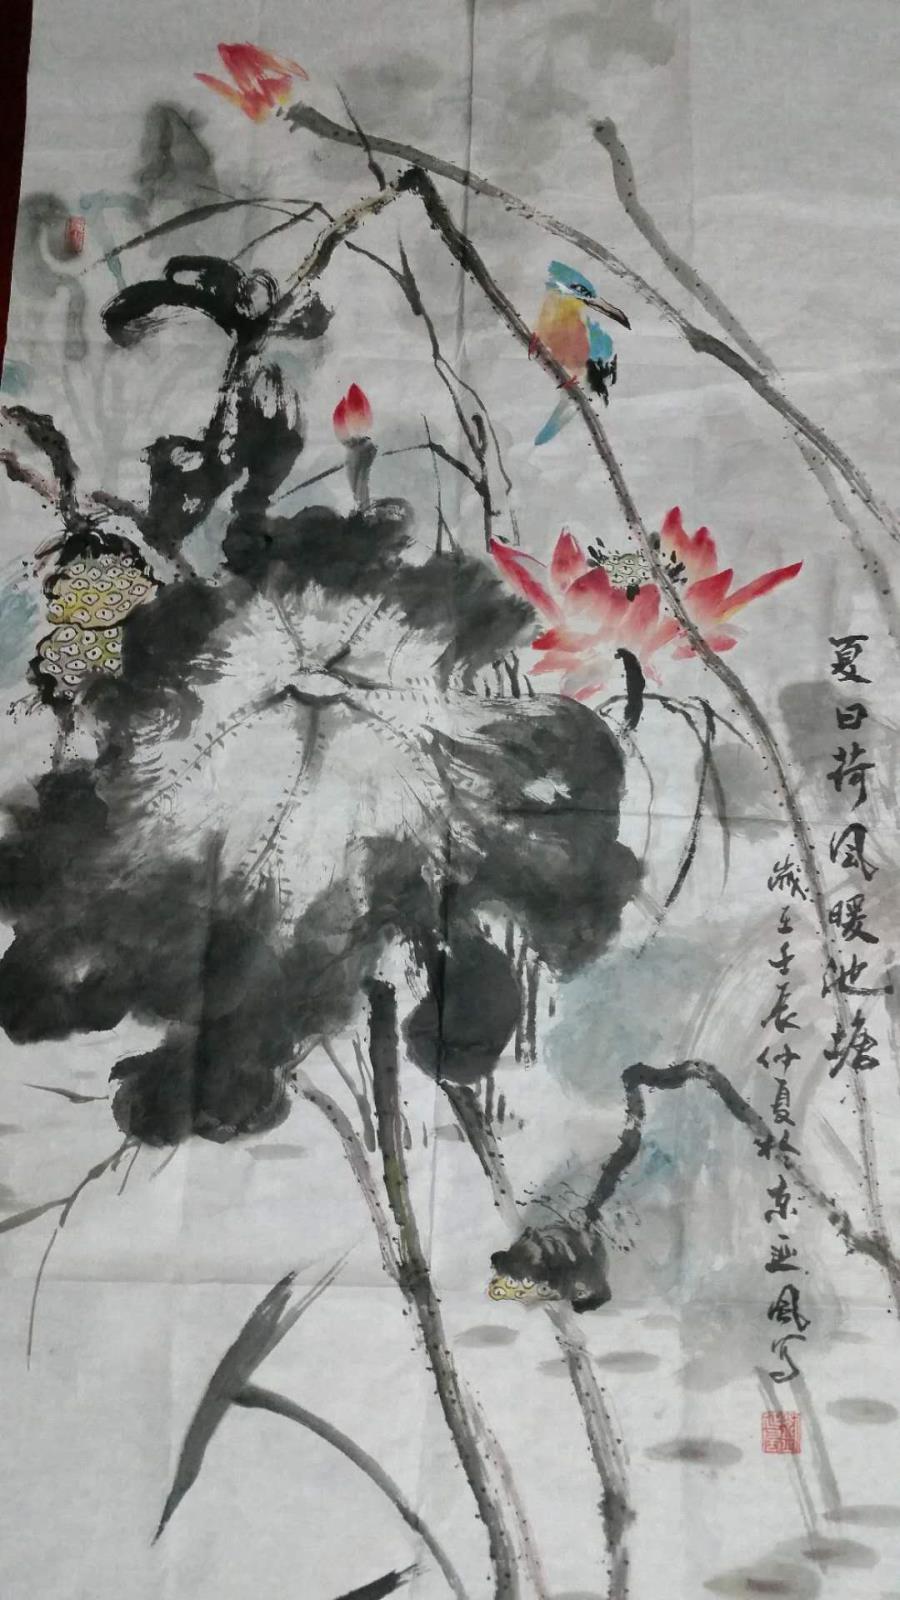 夏日荷风暖池塘
岁至壬辰仲夏於东亚风写